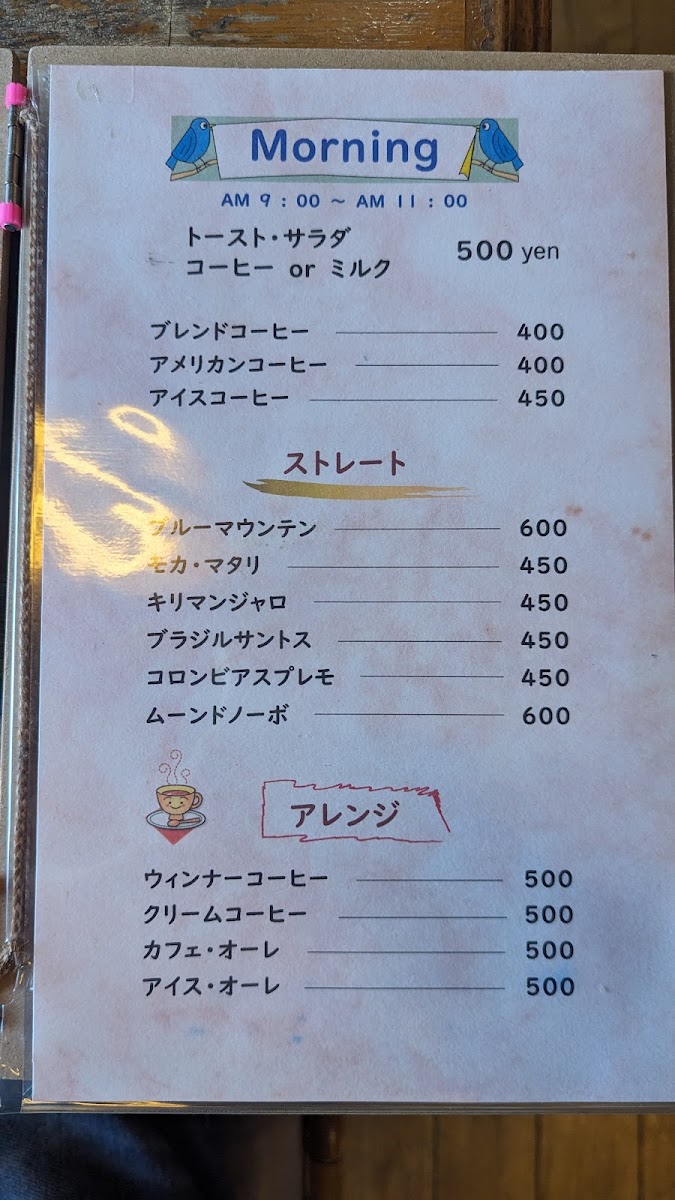 Morning
AM 9 : 00 ～ AM 11 : 00
トースト・サラダ
コーヒー or ミルク 500 yen
ブレンドコーヒー 400
アメリカンコーヒー 400
アイスコーヒー 450
ストレート
ブルーマウンテン 600
モカ・マタリ 450
キリマンジャロ 450
ブラジルサントス 450
コロンビアスプレモ 450
ムーンドノーボ 600
アレンジ
ウィンナーコーヒー 500
クリームコーヒー 500
カフェ・オーレ 500
アイス・オーレ 500